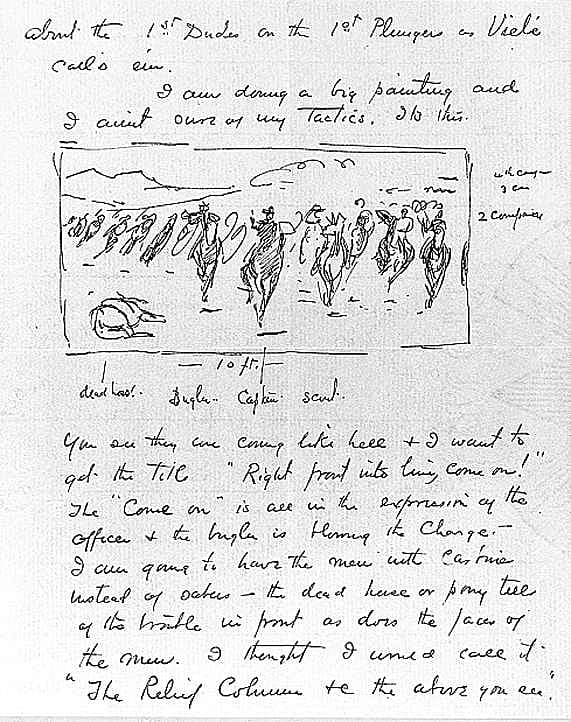 about the 1st Dudes on the 1st Plungers as Viele
calls em.
I am doing a big painting and
I aint sure of my Tactics. Its this.
2 Companies
10 ft.
dead horse. Bugler. Captain. scout.
You see they are coming like hell + I want to
get the Title "Right front into line, come on!"
The "Come on" is all in the expression of the
officer + the bugler is blowing the Charge. –
I am going to have the men with Carbine
instead of sabers – the dead horse or pony tell
of the trouble in front as does the faces of
the men. I thought I would call it
"The Relief Column +c the above you see."